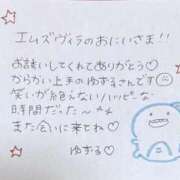 エムズヴィラのおにいさま!!
お誘いしてくれてありがとう♡
からかい上手のゆずるさんです♡
笑いが絶えない!ハッピーな
時間だった〜^^
また会いに来てね♡
ゆずる♡